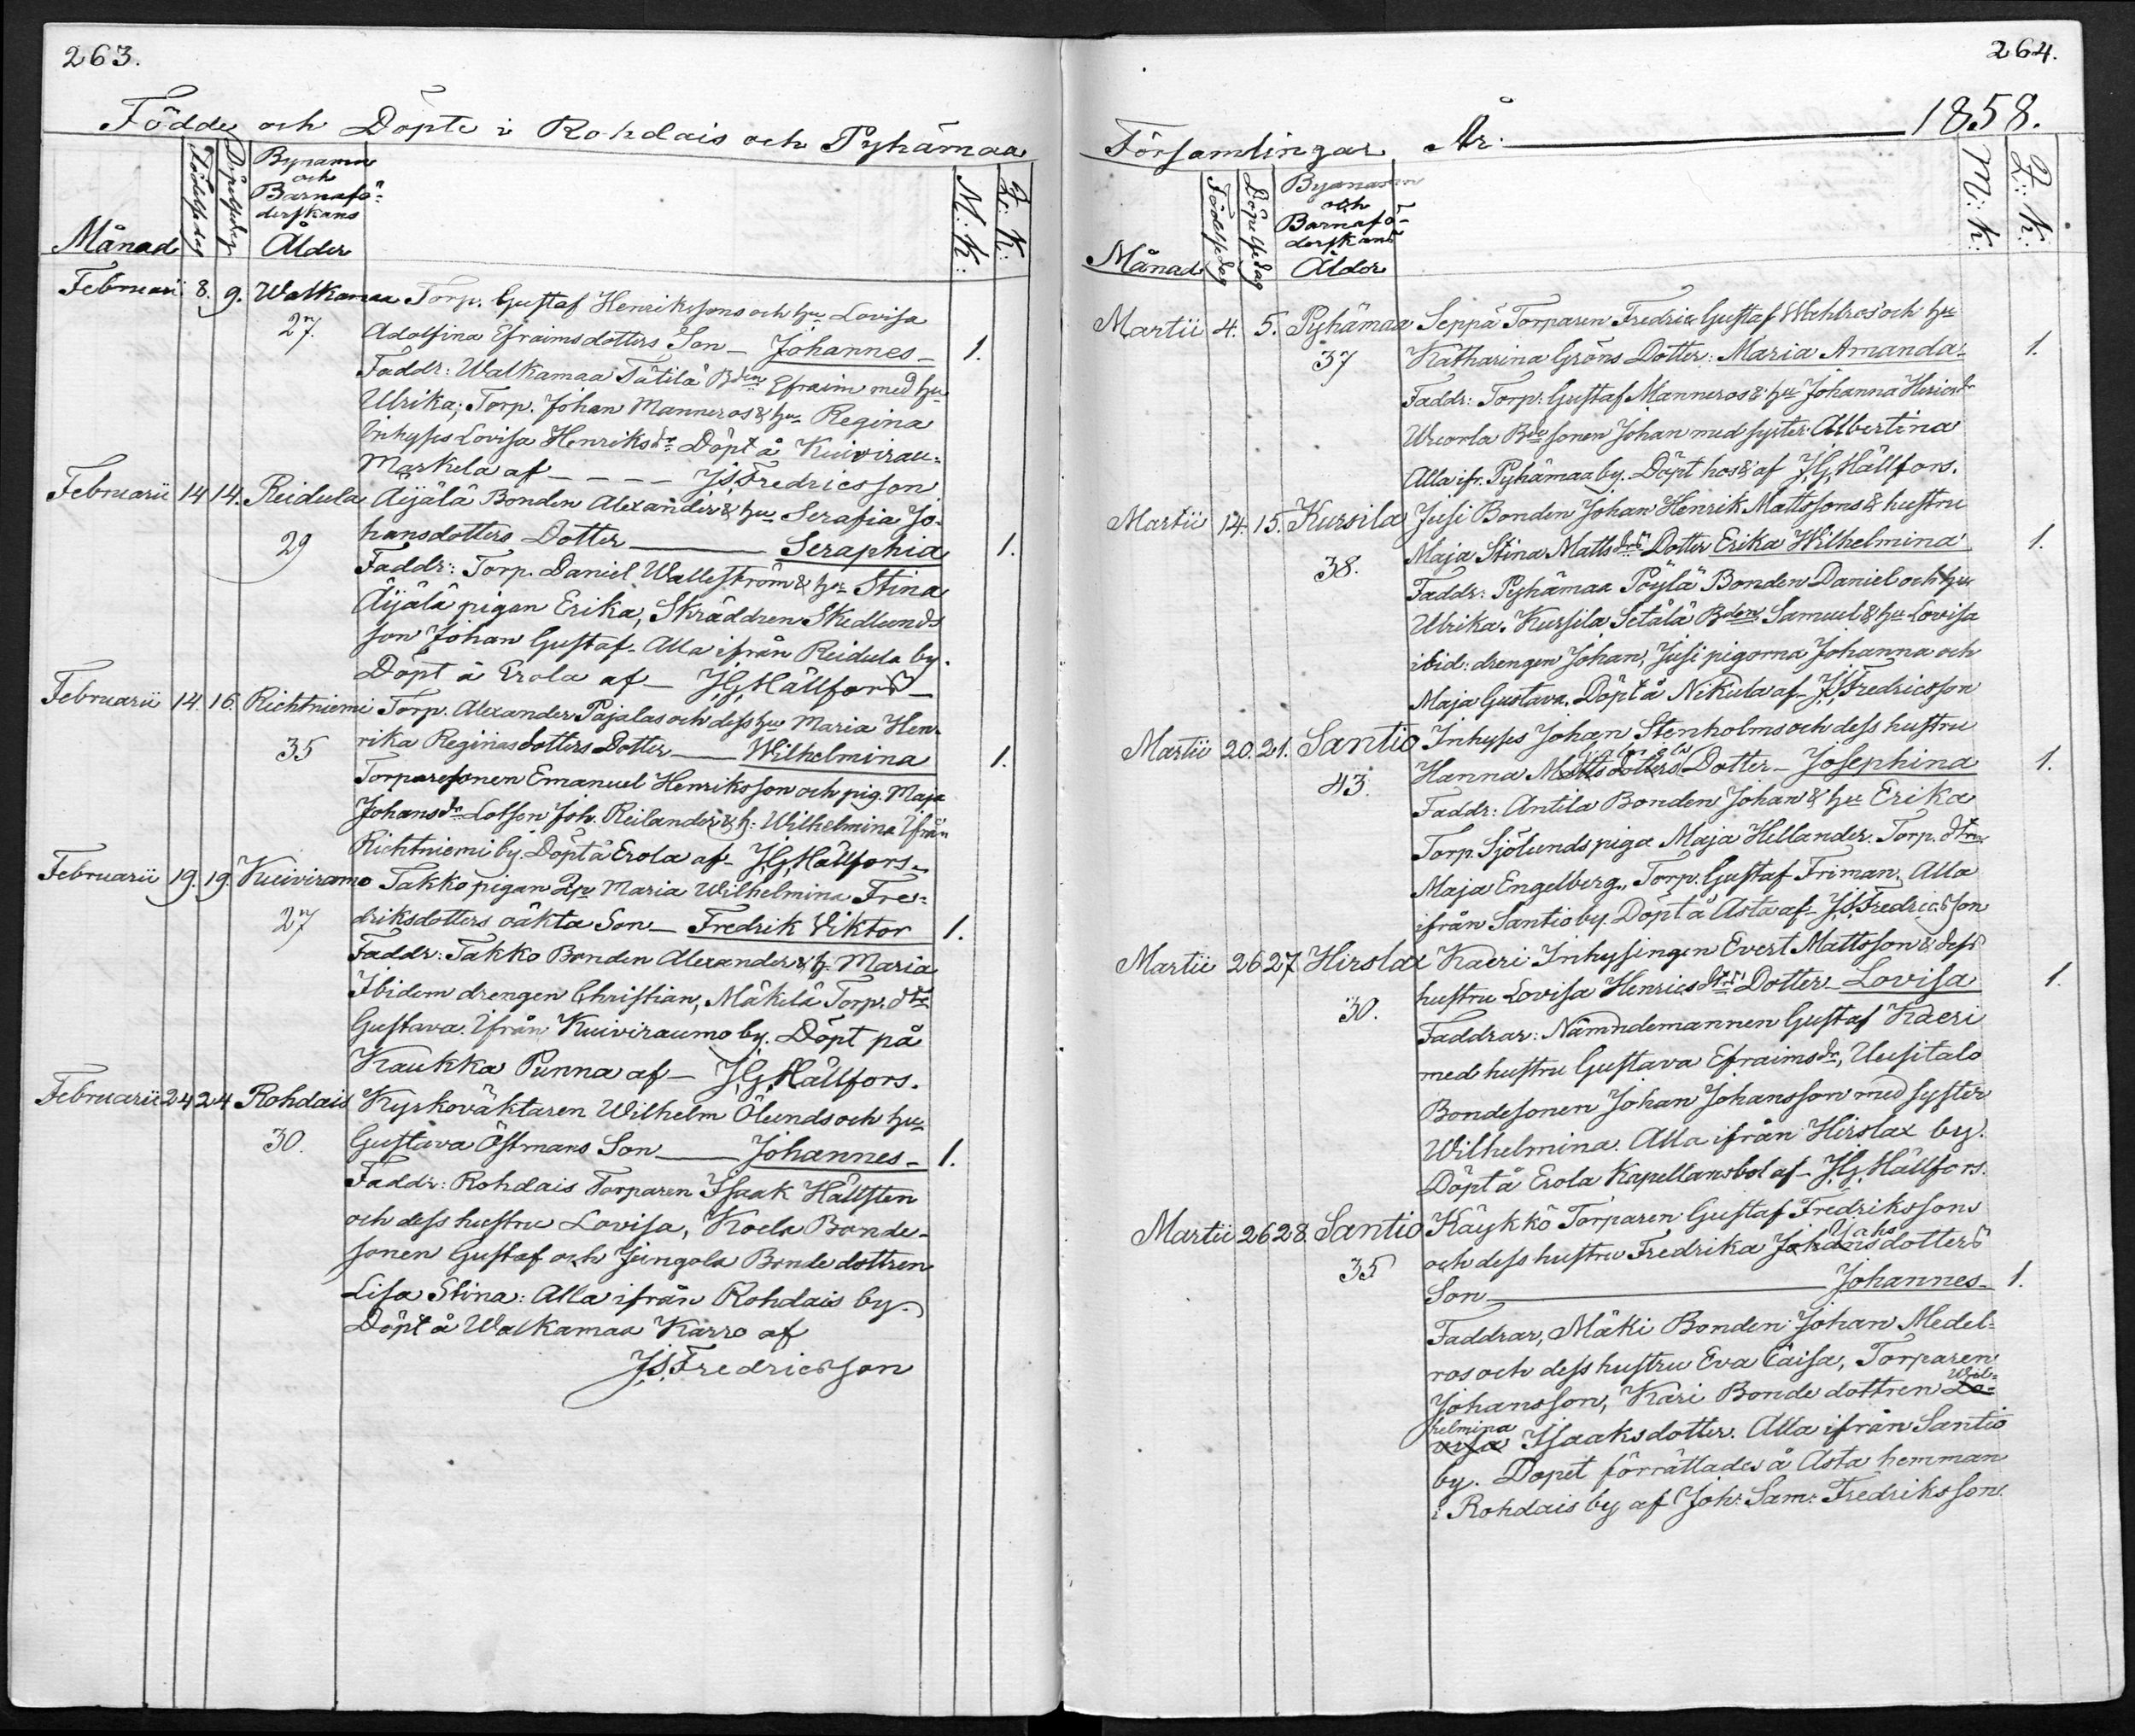 263.
Födde och Döpte i Rohdais och Pyhämaa
Månad
Födelsedag
Döpelsedag
Bynamn
och
Barnafö-
derskans
Ålder
M: K:
Q: K:
Februari 8. 9. Walkamaa Torp. Gustaf Henrikssons och hu Lovisa
27. Adolfina Efraimsdotters Son - Johannes - 1.
Faddr: Walkamaa Tätilä Bden Efraim med hu
Ulrika; Torp. Johan Manneros & hu Regina
Inhyses Lovisa Henriksdr Döpt å Kuivirau-
Markela af - - - - J.S. Fredricsson
Februarii 14 14. Reidula Äijälä Bonden Alexander & hu Serafia Jo-
29 hansdotters Dotter Seraphia 1.
Faddr: Torp. Daniel Wallström & hu Stina
Äijälä pigan Erika, Skräddren Skedlunds
son Johan Gustaf. Alla ifrån Reidula by.
Döpt å Erola af - J.G. Hällfors -
Februarii 14. 16. Richtniemi Torp. Alexander Pajalas och dess hu Maria Hen-
35 rika Reginasdotters Dotter Wilhelmina 1.
Torparesonen Emanuel Henriksson och pig. Maja
Johansdr Lotson Joh. Reilander & h: Wilhelmina ifrån
Richtniemi by. Döpt å Erola af - J.G. Hällfors.
Februarii 19. 19. Kuiviramo Takko pigan Qp Maria Wilhelmina Fre-
27 driksdotters oäkta Son - Fredrik Viktor 1.
Faddr: Takko Bonden Alexander & h. Maria
Ibidem drengen Christian, Mäkilä Torp. dtr
Gustava. Ifrån Kuiviraumo by. Döpt på
Kaukka Punna af - J.G. Hällfors.
Februarii 24 24 Rohdais Kyrkoväktaren Wilhelm Ölunds och hu
30. Gustava Östmans Son Johannes - 1.
Faddr: Rohdais Torparen Isaak Hällsten
och dess hustru Lovisa, Koela Bonde-
sonen Gustaf och Jungola Bonde dottren
Lisa Stina: Alla ifrån Rohdais by.
Döpt å Walkamaa Karro af
J.S. Fredricsson
264.
Församlingar År: 1858.
Månad
Födelsedag
Döpelsedag
Byanamn
och
Barnafö-
derskans
Ålder
M: K:
Q: K:
Martii 4. 5. Pyhämaa Seppä Torparen Fredric Gustaf Wahlros och hu
37 Katharina Gröns Dotter: Maria Amanda. 1.
Faddr: Torp. Gustaf Manneros & hu Johanna
Ucorla Bde sonen Johan med syster Albertina
Alla ifr. Pyhämaa by. Döpt hos & af J.G. Hällfors.
Martii 14. 15. Kursila Jusi Bonden Johan Henrik Mattssons & hustru
38. Maja Stina Mattsdrs Dotter Erika Wilhelmina 1.
Faddr: Pyhämaa Pöylä Bonden Daniel och hu
Ulrika. Kursila Setälä Bden Samuel & hu Lovisa
ibid: drengen Johan, Jusi pigorna Johanna och
Maja Gustava. Döpt å Nikula af J.S. Fredricsson
Martii 20. 21. Santio Inhyses Johan Stenholms och dess hustru
43. Hanna Mattsdotters Dotter - Josephina 1.
Faddr: Antila Bonden Johan & hu Erika
Torp. Sjölunds piga Maja Hellander. Torp. dtrn
Maja Engelberg. Torp. Gustaf Friman. Alla
ifrån Santio by. Döpt å Asta af J.S. Fredricsson
Martii 26 27 Hirslax Kaeri Inhysingen Evert Mattsson & dess
30. hustru Lovisa Henricsdtrs Dotter - Lovisa 1.
Faddrar: Nämndemannen Gustaf Kaeri
med hustru Gustava Efraimsdr, Uusitalo
Bondesonen Johan Johansson med syster
Wilhelmina. Alla ifrån Hirslax by.
Döpt å Erola Kapellansbol af - J.G. Hällfors.
Martii 26 28. Santio Käykkö Torparen Gustaf Fredrikssons
35 och dess hustru Fredrika Johansdotters
Son Johannes - 1.
Faddrar, Mäki Bonden Johan Medel-
ros och dess hustru Eva Caisa, Torparen
Johansson, Käri Bonde dottren Wil-
helmina Isaaksdotter. Alla ifrån Santio
by. Dopet förrättades å Asta hemman
i Rohdais by af Joh: Sam: Fredriksson.